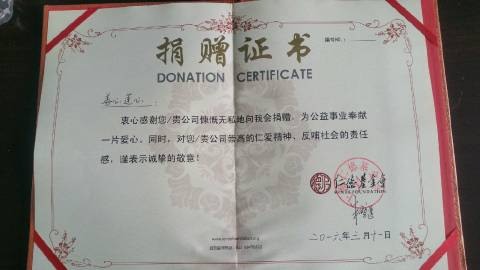 编号NO.:
捐赠证书
DONATION CERTIFICATE
衷心感谢您/贵公司慷慨无私地向我会捐赠，为公益事业奉献
一片爱心。同时，对您/贵公司崇高的仁爱精神、反哺社会的责任
感，谨表示诚挚的敬意！
仁德基金会
RENDE FOUNDATION
二〇一六年三月十一日